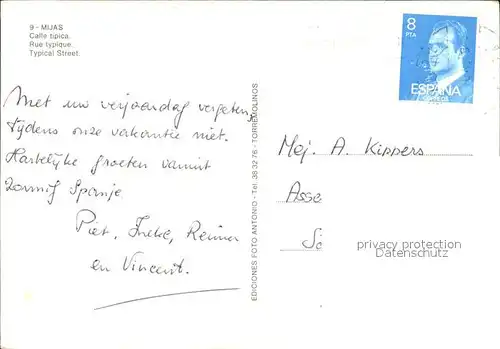 9 - MIJAS
Calle típica.
Rue typique.
Typical Street.
8
PTA
ESPAÑA
CORREOS
Met uw verjaardag vergeten,
tijdens onze vakantie niet.
Hartelijke groeten vanuit
zonnig Spanje
Piet, Ineke, Reinier
en Vincent.
EDICIONES FOTO ANTONIO - Tel. 38 32 76 - TORREMOLINOS
Mej. A. Kippers
Asse
privacy protection
Datenschutz